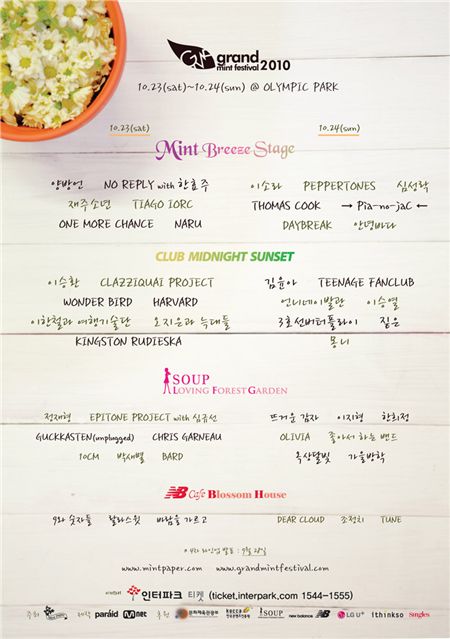 GMF grand
mint festival 2010
10.23(sat)~10.24(sun) @ OLYMPIC PARK
10.23(sat) 10.24(sun)
Mint Breeze Stage
양방언 NO REPLY with 한효주 이소라 PEPPERTONES 심성락
재주소년 TIAGO IORC THOMAS COOK → Pia-no-jaC ←
ONE MORE CHANCE NARU DAYBREAK 안녕바다
CLUB MIDNIGHT SUNSET
이승환 CLAZZIQUAI PROJECT 김윤아 TEENAGE FANCLUB
WONDER BIRD HARVARD 언니네이발관 이승열
이한철과 여행기술단 오지은과 늑대들 3호선버터플라이 짙은
KINGSTON RUDIESKA 몽니
SOUP
LOVING FOREST GARDEN
정재형 EPITONE PROJECT with 심규선 뜨거운 감자 이지형 한희정
GUCKKASTEN(unplugged) CHRIS GARNEAU OLIVIA 좋아서 하는 밴드
10CM 박새별 BARD 옥상달빛 가을방학
NB Cafe Blossom House
9와 숫자들 랄라스윗 바람을 가르고 DEAR CLOUD 조정치 TUNE
4차 라인업 발표 : 9월 28일
www.mintpaper.com www.grandmintfestival.com
인터파크 티켓 (ticket.interpark.com 1544-1555)
주최 제작 paraid Mnet 후원 문화체육관광부 kocca SOUP new balance LG U+ ithinkso Singles